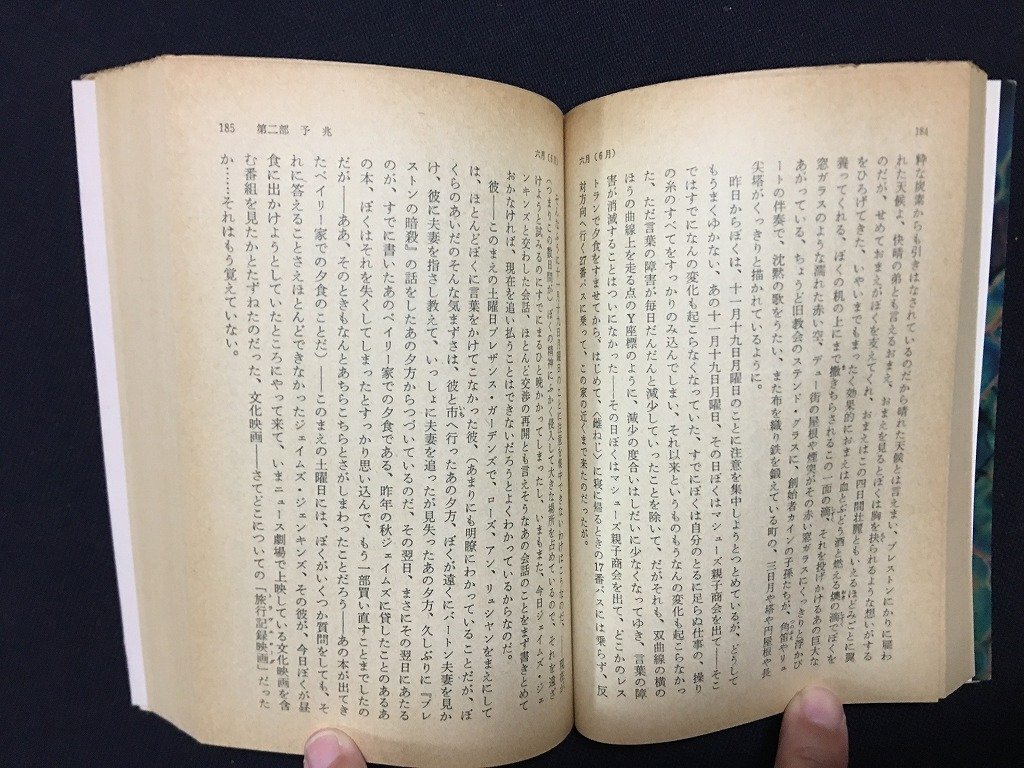 184
六月(6月)
粋な炭素からも引きはなされているのだから晴れた天候とは言えまい、ブレストンにかりに雇わ
れた天候よ、快晴の弟とも言えるおまえ、おまえを見るとぼくは胸を抉られるような想いがする
のだが、せめておまえがぼくを支えてくれ、おまえはこの四日間壮麗ともいえるほどみごとに翼
をひろげてきた、いやいまでもまったく効果的におまえは血とぶどう酒と燃える燠の滴でぼくを
養ってくれる、ぼくの机の上にまで撒きちらされるこの一面の滴、それを投げかけるあの巨大な
窓ガラスのような濡れた赤い空、デュー街の屋根や煙突がその赤い窓ガラスにくっきりと浮かび
あがっている、ちょうど旧教会のステンド・グラスに、創始者カインの子孫たちが、角笛やリュ
ートの伴奏で、沈黙の歌をうたい、また布を織り鉄を鍛えている町の、三日月や塔や円屋根や長
尖塔がくっきりと描かれているように。
昨日からぼくは、十一月十九日月曜日のことに注意を集中しようとつとめているが、どうして
もうまくゆかない、あの十一月十九日月曜日、その日ぼくはマシューズ親子商会を出て――そこ
ではすでになんの変化も起こらなくなっていた、すでにぼくは自分のとるに足らぬ仕事の、操り
の糸のすべてをすっかりのみ込んでしまい、それ以来というものもうなんの変化も起こらなかっ
た、ただ言葉の障害が毎日だんだんと減少していったことを除いて、だがそれも、双曲線の横の
ほうの曲線上を走る点のY座標のように、減少の度合いはしだいに少なくなってゆき、言葉の障
害が消滅することはついになかった――その日ぼくはマシューズ親子商会を出て、どこかのレス
トランで夕食をすませてから、はじめて、〈雌ねじ〉に寝に帰るときの17番バスには乗らず、反
対方向へ行く27番バスに乗って、この家の近くまで来たのだったが。
185 第二部 予兆
六月(6月)
(つまりこの数日間が)ぼくの精神にふかく侵入して大きな場所を占めているので、それを遠ざ
けようと試みるのにすでにまるひと晩かかってしまったし、いまもまた、今日ジェイムズ・ジェ
ンキンズと交わした会話、ほとんど交渉の再開とも言えそうなあの会話のことをまず書きとめて
おかなければ、現在を追い払うことはできないだろうとよくわかっているからなのだ。
彼――このまえの土曜日プレザンス・ガーデンズで、ローズ、アン、リュシヤンをまえにして
は、ほとんどぼくに言葉をかけてこなかった彼、(あまりにも明瞭にわかっていることだが、ぼ
くらのあいだのそんな気まずさは、彼と市へ行ったあの夕方、ぼくが遠くにバートン夫妻を見か
け、彼に夫妻を指さし教えて、いっしょに夫妻を追ったが見失ったあの夕方、久しぶりに『ブレ
ストンの暗殺』の話をしたあの夕方からつづいているのだ、その翌日、まさにその翌日にあたる
のが、すでに書いたあのベイリー家での夕食である、昨年の秋ジェイムズに貸したことのあるあ
の本、ぼくはそれを失くしてしまったとすっかり思い込んで、もう一部買い直すことまでしたの
だが――ああ、そのときもなんとあちらこちらとさがしまわったことだろう――あの本が出てき
たベイリー家での夕食のことだ)――このまえの土曜日には、ぼくがいくつか質問をしても、そ
れに答えることさえほとんどできなかったジェイムズ・ジェンキンズ、その彼が、今日ぼくが昼
食に出かけようとしていたところにやって来て、いまニュース劇場で上映している文化映画を含
む番組を見たかとたずねたのだった、文化映画――さてどこについての「旅行記録映画」だった
か……それはもう覚えていない。